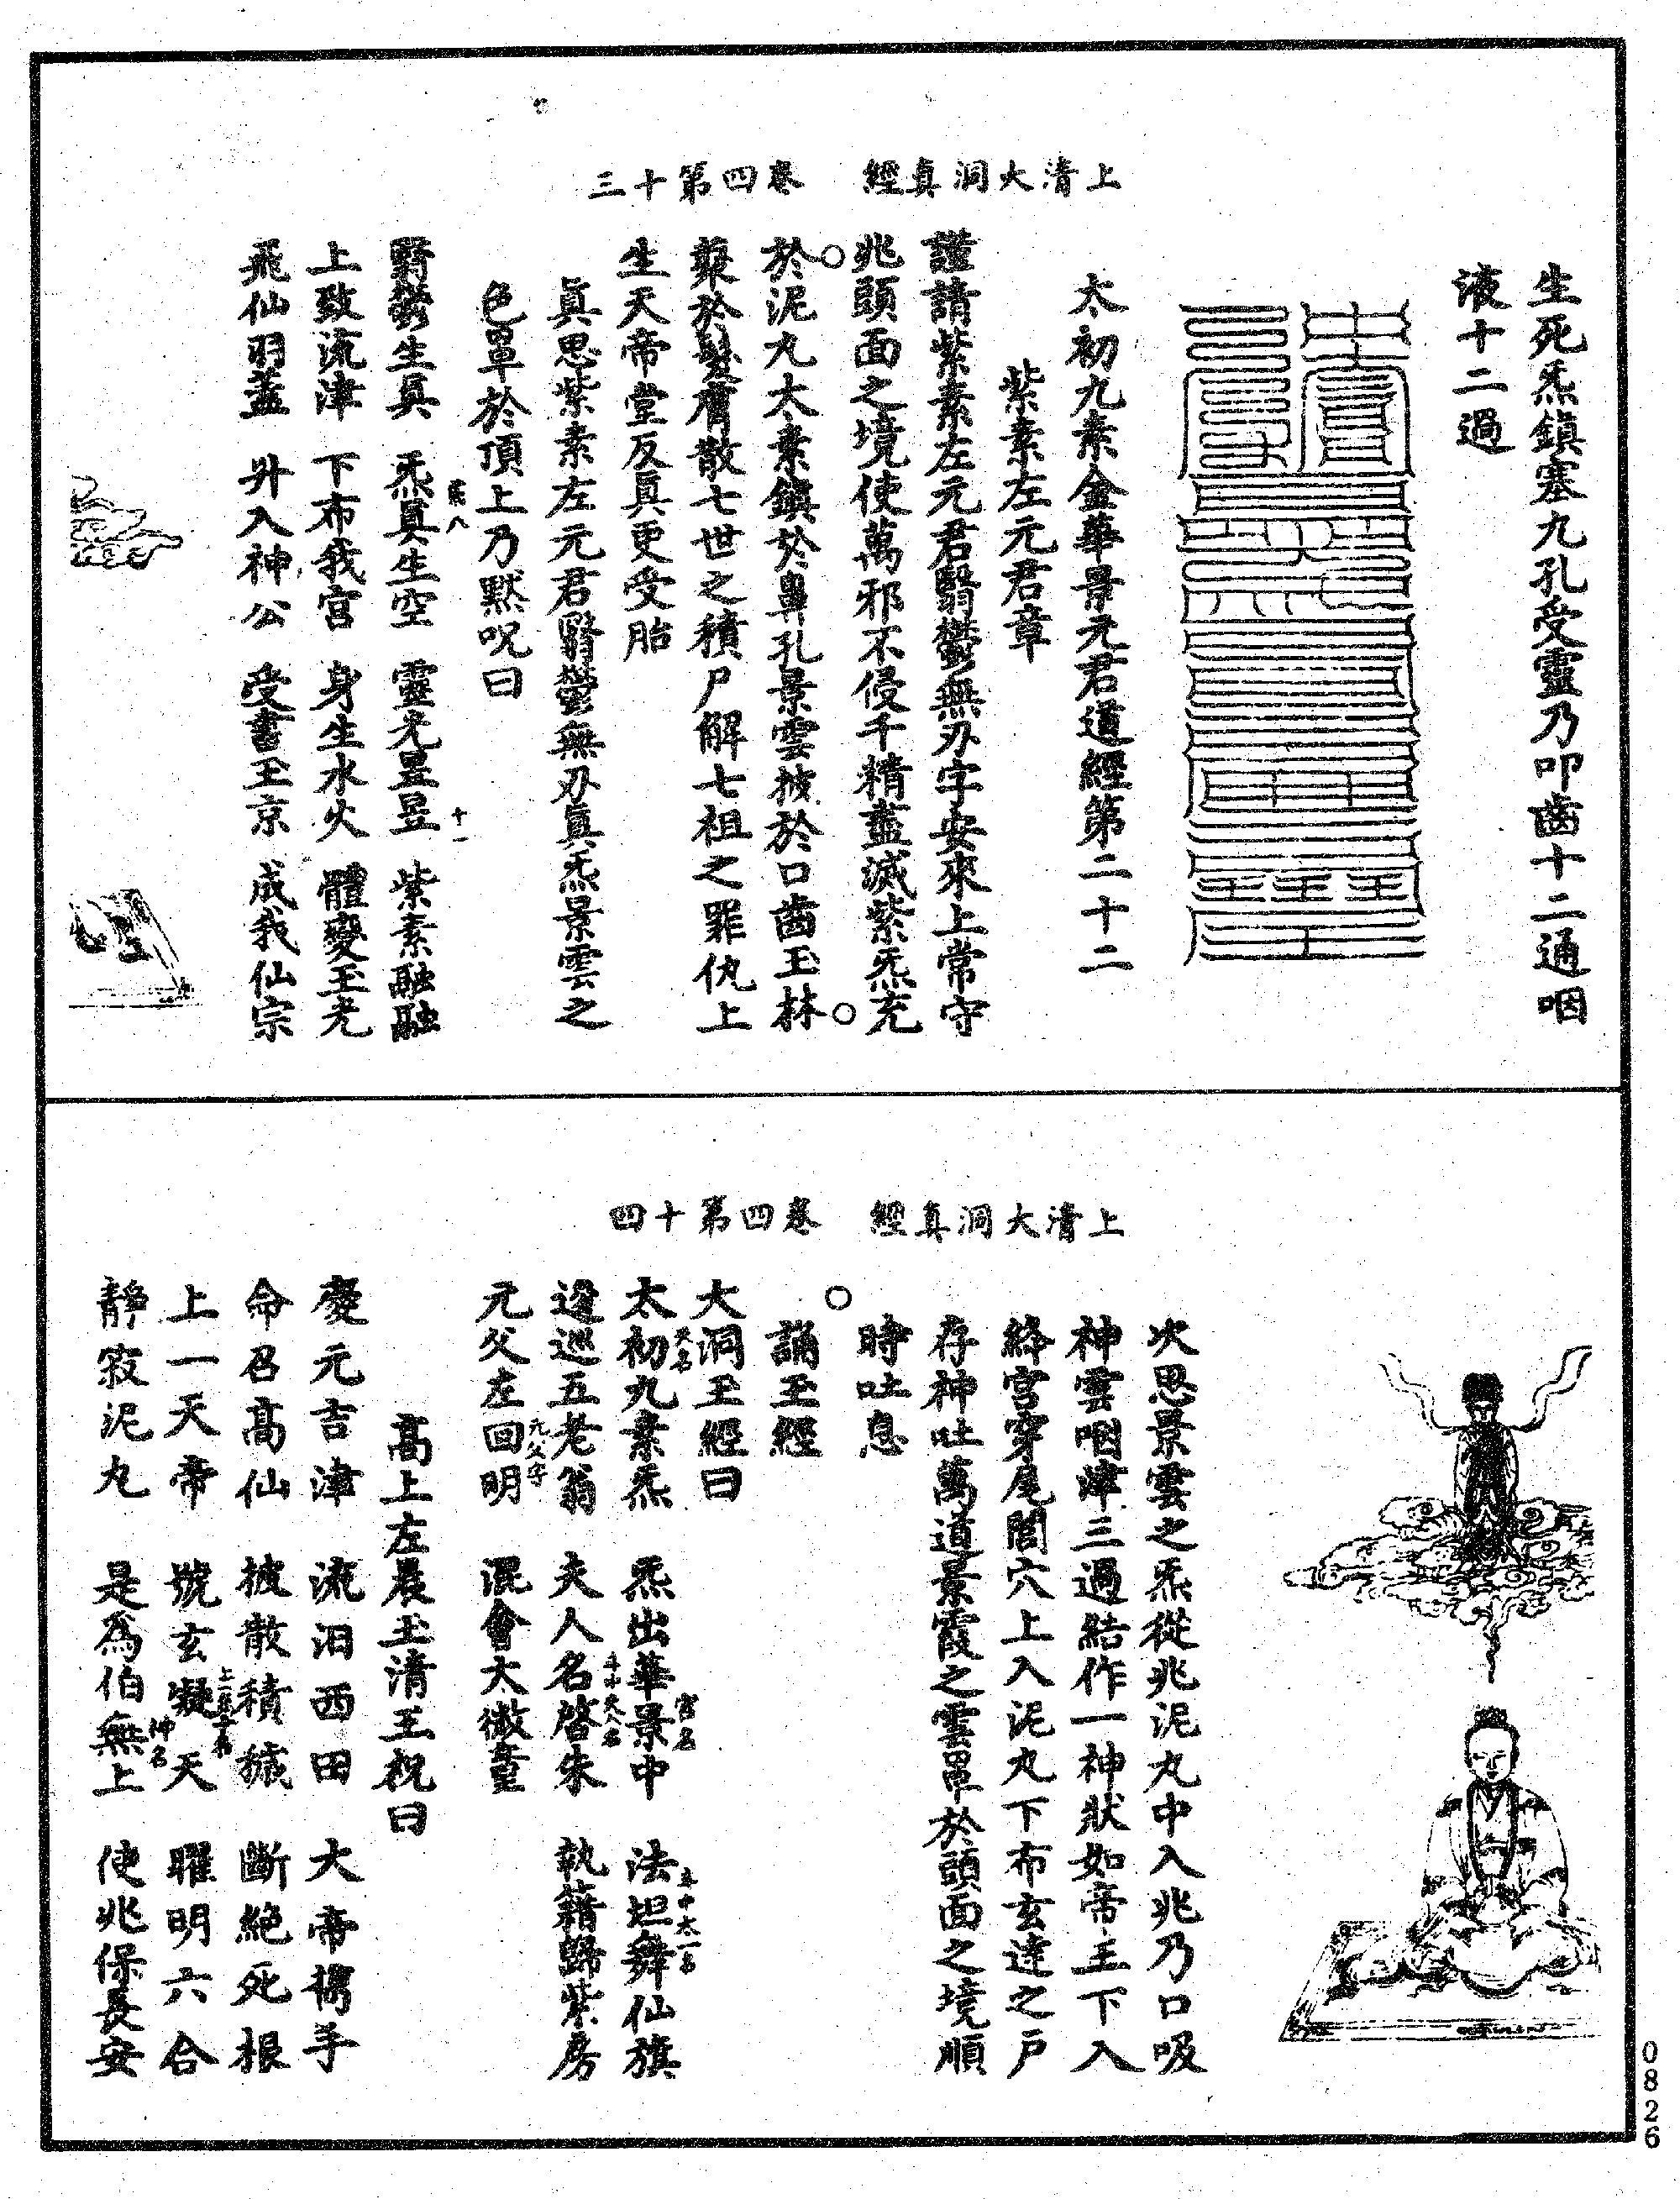 上清大洞真經　卷四第十三
生死炁鎮塞九孔受靈乃叩齒十二通咽
液十二過
太初九素金華景元君道經第二十二
紫素左元君章
謹請紫素左元君翳鬱無刃字安來上常守
兆頭面之境使萬邪不侵千精盡滅紫炁充
於泥丸太素鎮於鼻孔景雲披於口齒玉林
聚於髮膚散七世之積尸解七祖之罪仇上
生天帝堂反真更受胎
真思紫素左元君翳鬱無刃真炁景雲之
色罩於頂上乃默呪曰
翳鬱生真　炁真生空　靈光昱昱　紫素融融
十一
上致流津　下布我宮　身生水火　體變玉光
飛仙羽蓋　升入神公　受書玉京　成我仙宗
上清大洞真經　卷四第十四
次思景雲之炁從兆泥丸中入兆乃口吸
神雲咽津三過結作一神狀如帝王下入
絳宮穿尾閭穴上入泥丸下布玄達之戶
存神吐萬道景霞之雲罩於頭面之境順
時吐息
誦玉經
大洞玉經曰
太初天名九素炁　炁出華景宮名中　法坦舞仙旗
逡巡五老翁　夫人名啓朱　執籍歸紫房
元父左回明元父字　混會大微童
高上左晨玉清王祝曰
慶元吉津　流汨西田　大帝攜手
命召高仙　披散積穢　斷絕死根
上一天帝　號玄凝天　曜明六合
靜寂泥丸　是為伯無上神名　使兆保長安
0826